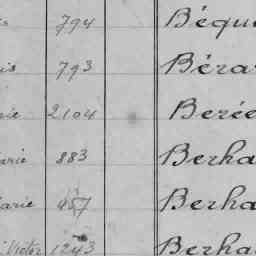 is 794 Béqu
is 793 Béra
rie 2104 Berée
arie 883 Berha
arie 487 Berha
Victor 1243 Berha